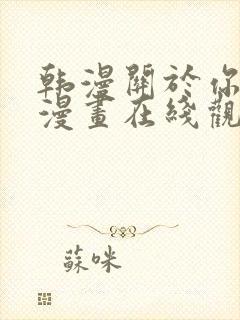 韩漫關於你
漫畫在綫觀
蘇咪